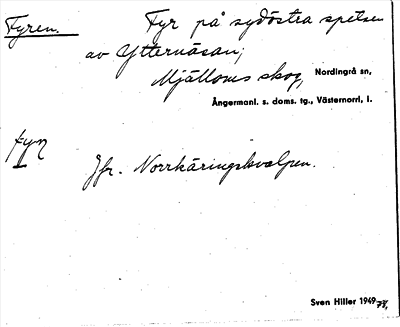 Fyren. Fyr på sydöstra spetsen
av Ytternäsan;
Mjälloms skog, Nordingrå sn,
Ångermanl. s. doms. tg., Västernorrl, l.
Fyr
Jfr. Norrkäringskvalpen.
Sven Hiller 1949